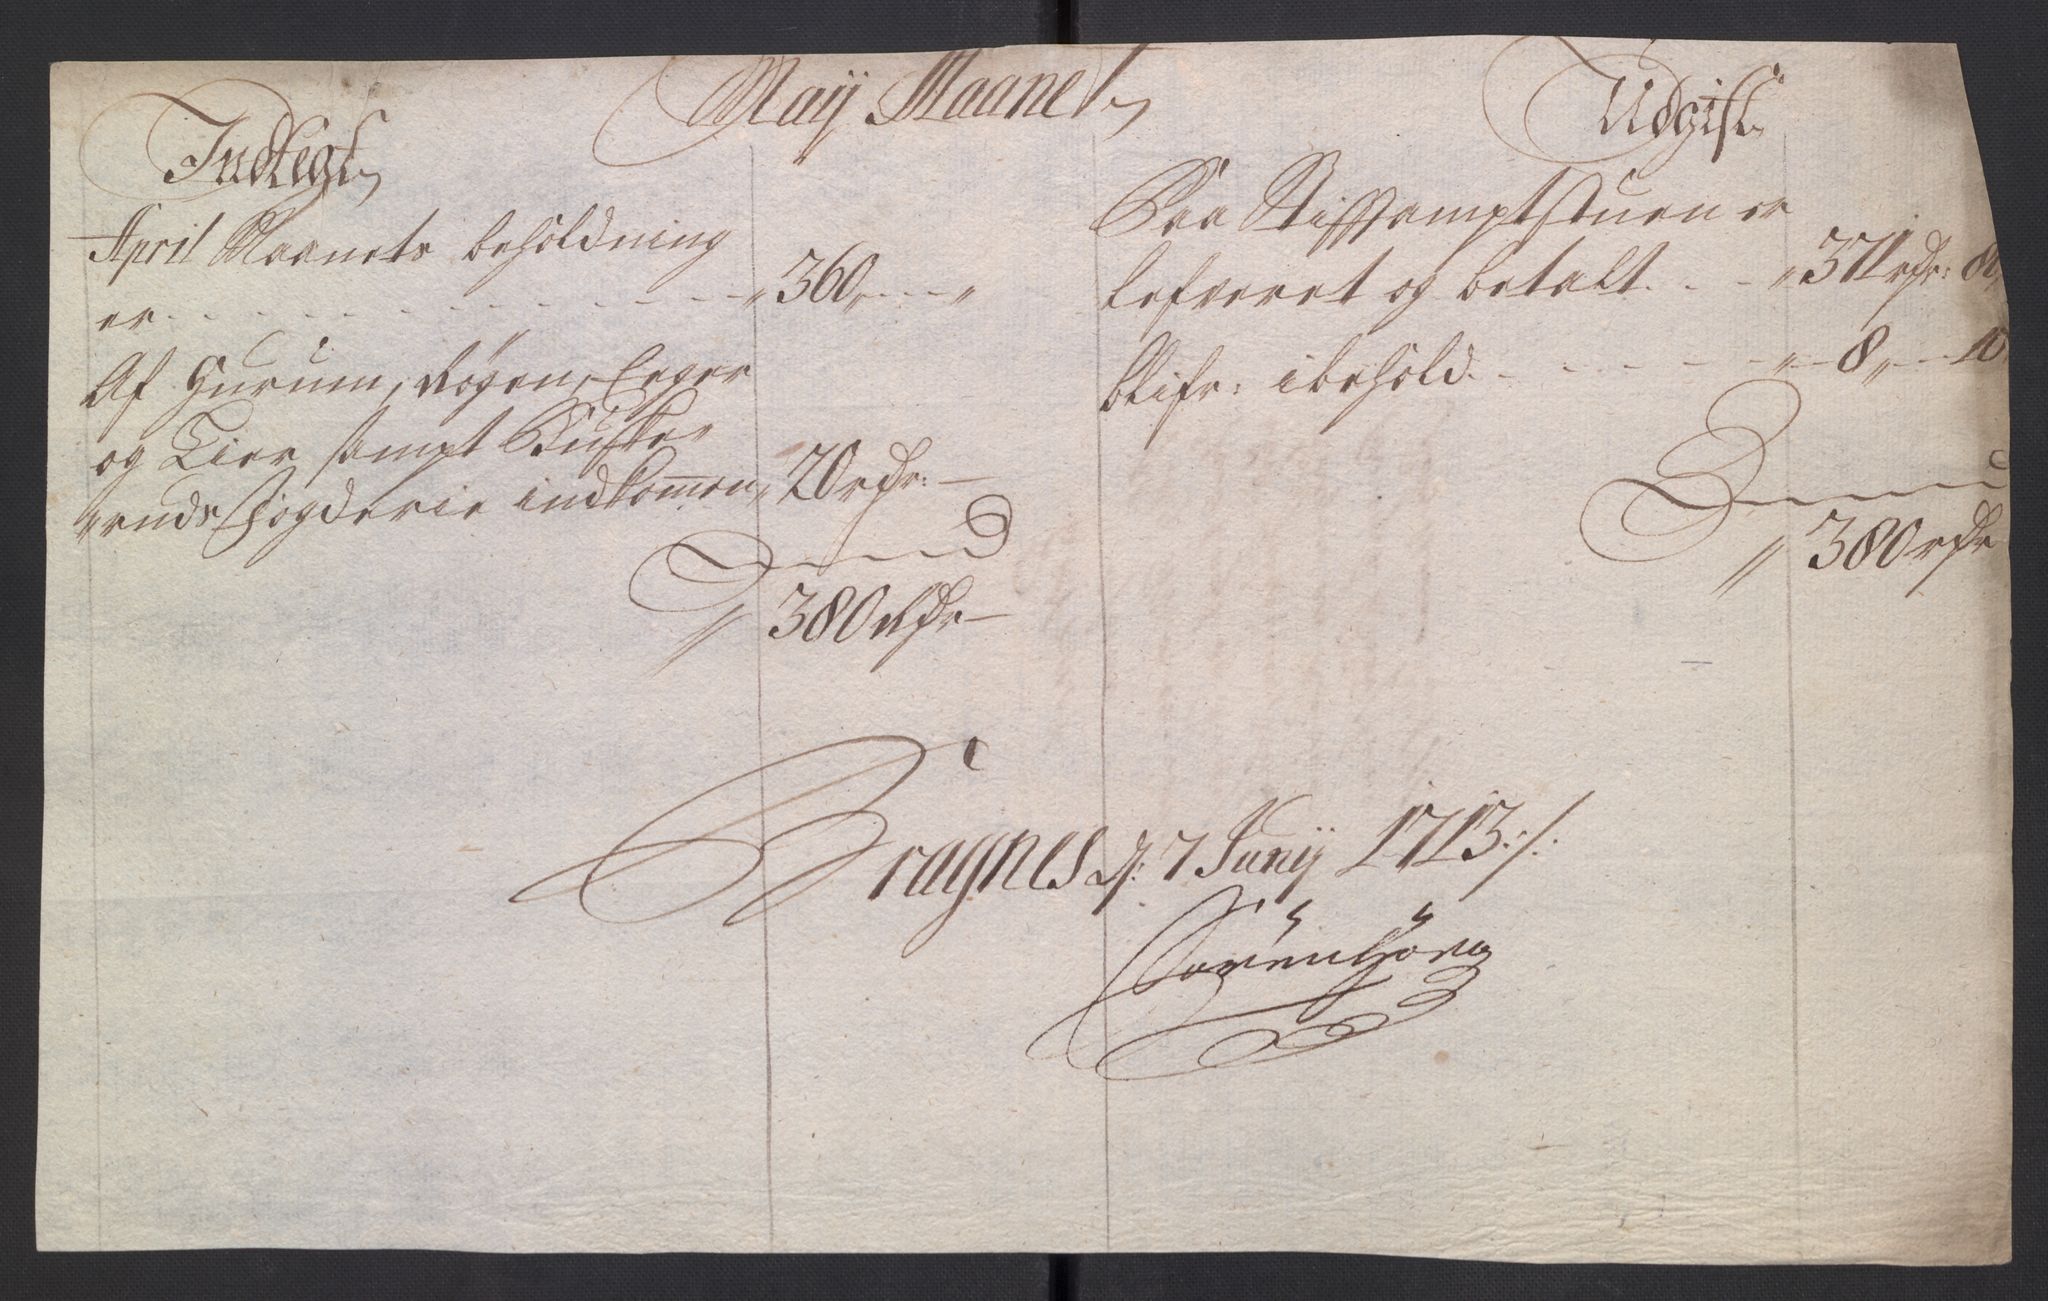 Maij Maanet
Indtegt
April Maanets beholdning
er . . . . . . . . . 360 „ . . „
Af Hurum, Røgen, Eeger
og Lier sampt Buske-
ruds fogderie indkommen 20 rdr: —
380 rdr —
Udgift
Paa Stifftamptstuen er
lefveret og betalt . . . 371 rdr: 8
blifr: ibehold . . . . . 8 „
380 rdr
Bragnes d: 7 Junij 1713 ./.
Sörenbörg